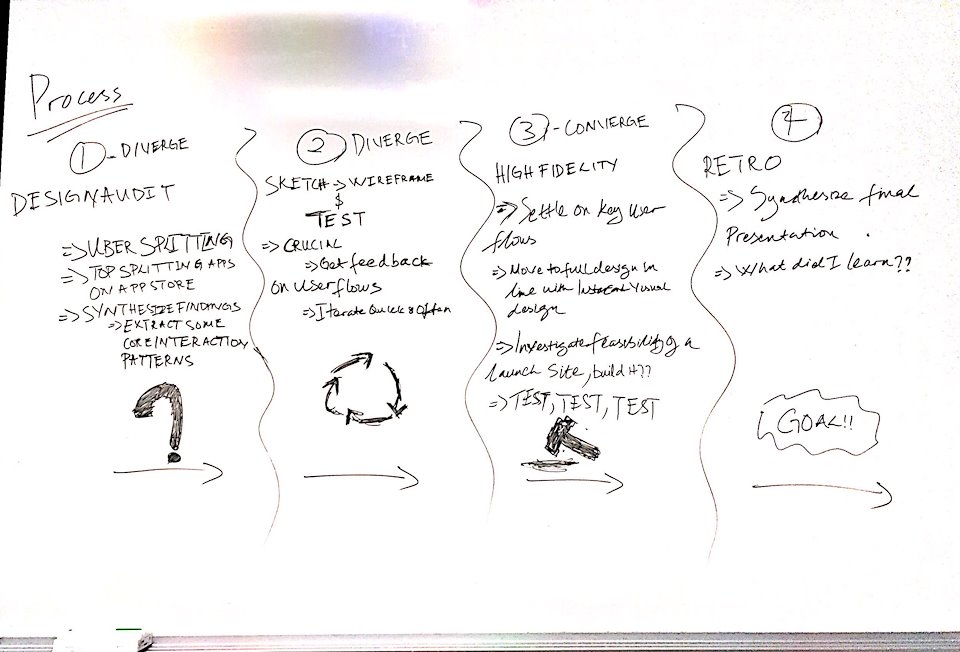 Process
1 - DIVERGE
DESIGN AUDIT
⇒ UBER SPLITTING
⇒ TOP SPLITTING APPS
ON APP STORE
⇒ SYNTHESIZE FINDINGS
⇒ EXTRACT SOME
CORE INTERACTION
PATTERNS
?
2 DIVERGE
SKETCH → WIREFRAME
&
TEST
⇒ CRUCIAL
⇒ Get feedback
on userflows
⇒ Iterate Quick & Often
3 - CONVERGE
HIGH FIDELITY
⇒ Settle on key user
flows
⇒ Move to full design in
line with Visual
design
⇒ Investigate feasibility of a
launch site, build it??
⇒ TEST, TEST, TEST
4
RETRO
⇒ Synthesize final
Presentation .
⇒ What did I learn??
GOAL!!